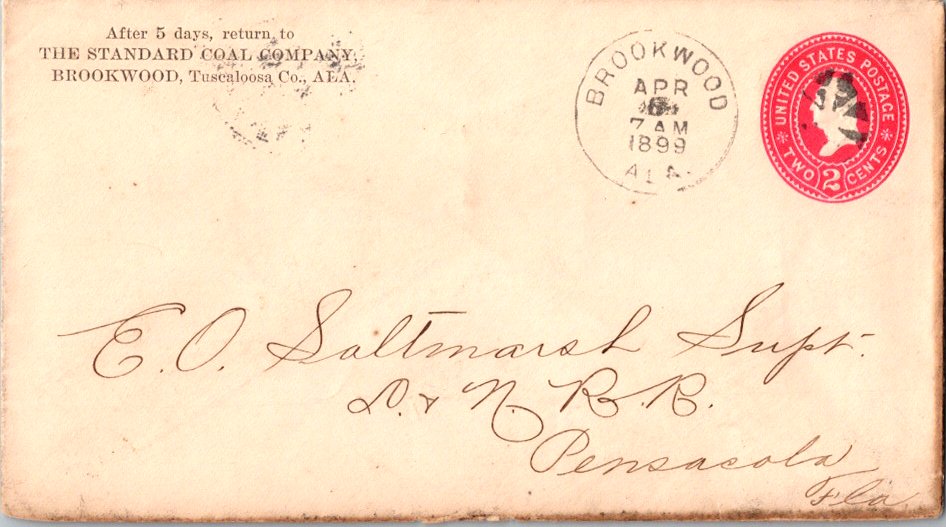 After 5 days, return to
THE STANDARD COAL COMPANY,
BROOKWOOD, Tuscaloosa Co., ALA.
BROOKWOOD
APR
6
7 AM
1899
ALA.
UNITED STATES POSTAGE
TWO 2 CENTS
E. O. Saltmarsh Supt.
L. & N. R. R.
Pensacola
Fla